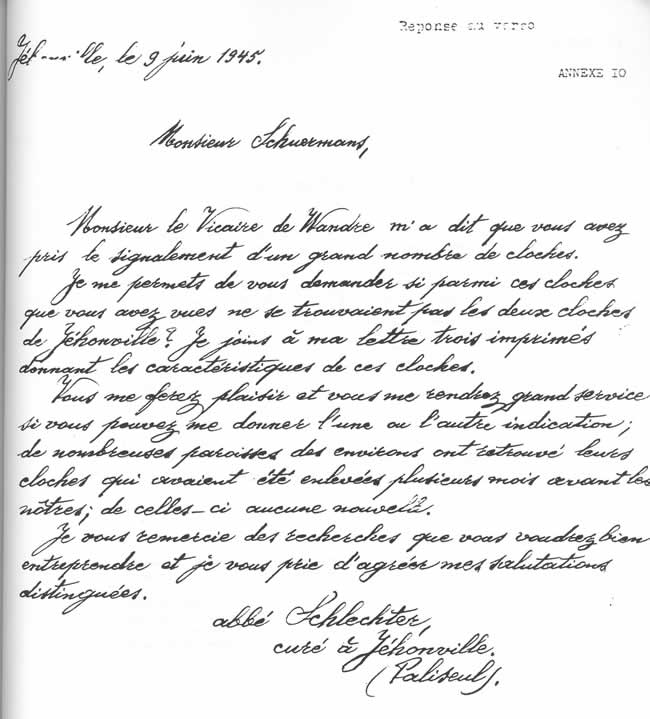 Reponse au verso
Jéhonville, le 9 juin 1945.
ANNEXE IO
Monsieur Schuermans,
Monsieur le Vicaire de Wandre m'a dit que vous avez
pris le signalement d'un grand nombre de cloches.
Je me permets de vous demander si parmi ces cloches
que vous avez vues ne se trouvaient pas les deux cloches
de Jéhonville? Je joins à ma lettre trois imprimés
donnant les caractéristiques de ces cloches.
Vous me ferez plaisir et vous me rendrez grand service
si vous pouvez me donner l'une ou l'autre indication;
de nombreuses paroisses des environs ont retrouvé leurs
cloches qui avaient été enlevées plusieurs mois avant les
nôtres; de celles-ci aucune nouvelle.
Je vous remercie des recherches que vous voudrez bien
entreprendre et je vous prie d'agréer mes salutations
distinguées.
abbé Schlechter,
curé à Jéhonville.
(Paliseul).